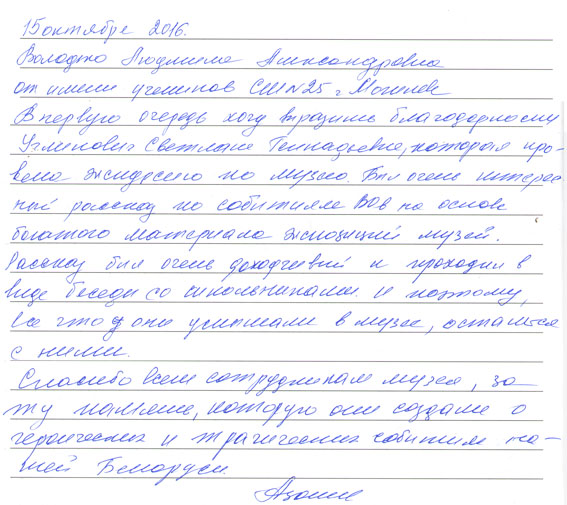 15 октября 2016.
Володко Людмила Александровна
от имени учеников СШ N25 г. Могилев
В первую очередь хочу выразить благодарность
Светлане Геннадьевне, которая про-
вела экскурсию по музею. Был очень интерес-
ный рассказ по событиям ВОВ на основе
богатого материала экспозиций музей.
Рассказ был очень доходчивый и проходил в
виде беседы со школьниками. И поэтому,
все что они услышали в музее, останется
с ними.
Спасибо всем сотрудникам музея, за
ту память, которую они создали о
героических и трагических событиям на-
шей Беларуси.